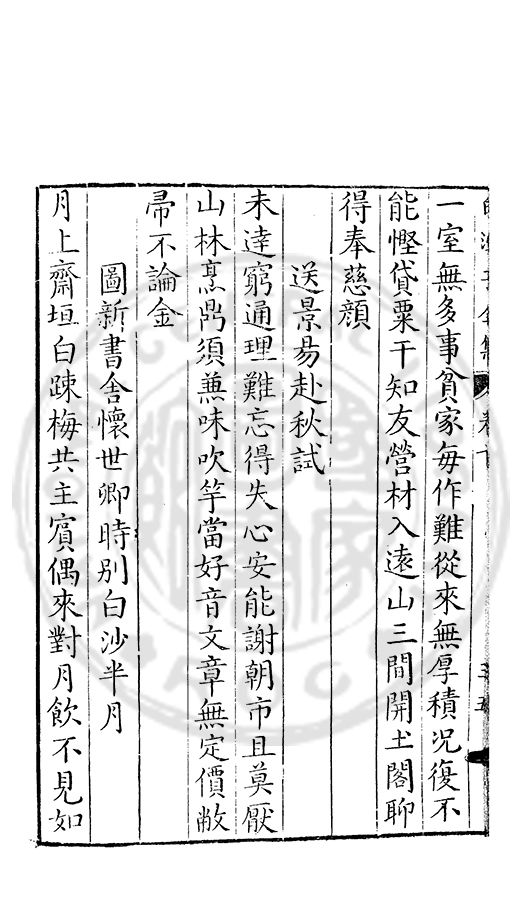 一室無多事貧家毎作難從來無厚積况復不
能慳貸粟干知友營材入逺山三間開土閣聊
得奉慈顔
送景昜赴秋試
未逹窮通理難忘得失心安能謝朝市且莫厭
山林烹鼎須兼味吹竽當好音文章無定價敝
帚不論金
圖新書舍懷世卿時别白沙半月
月上齋垣白踈梅共主賔偶來對月飲不見如